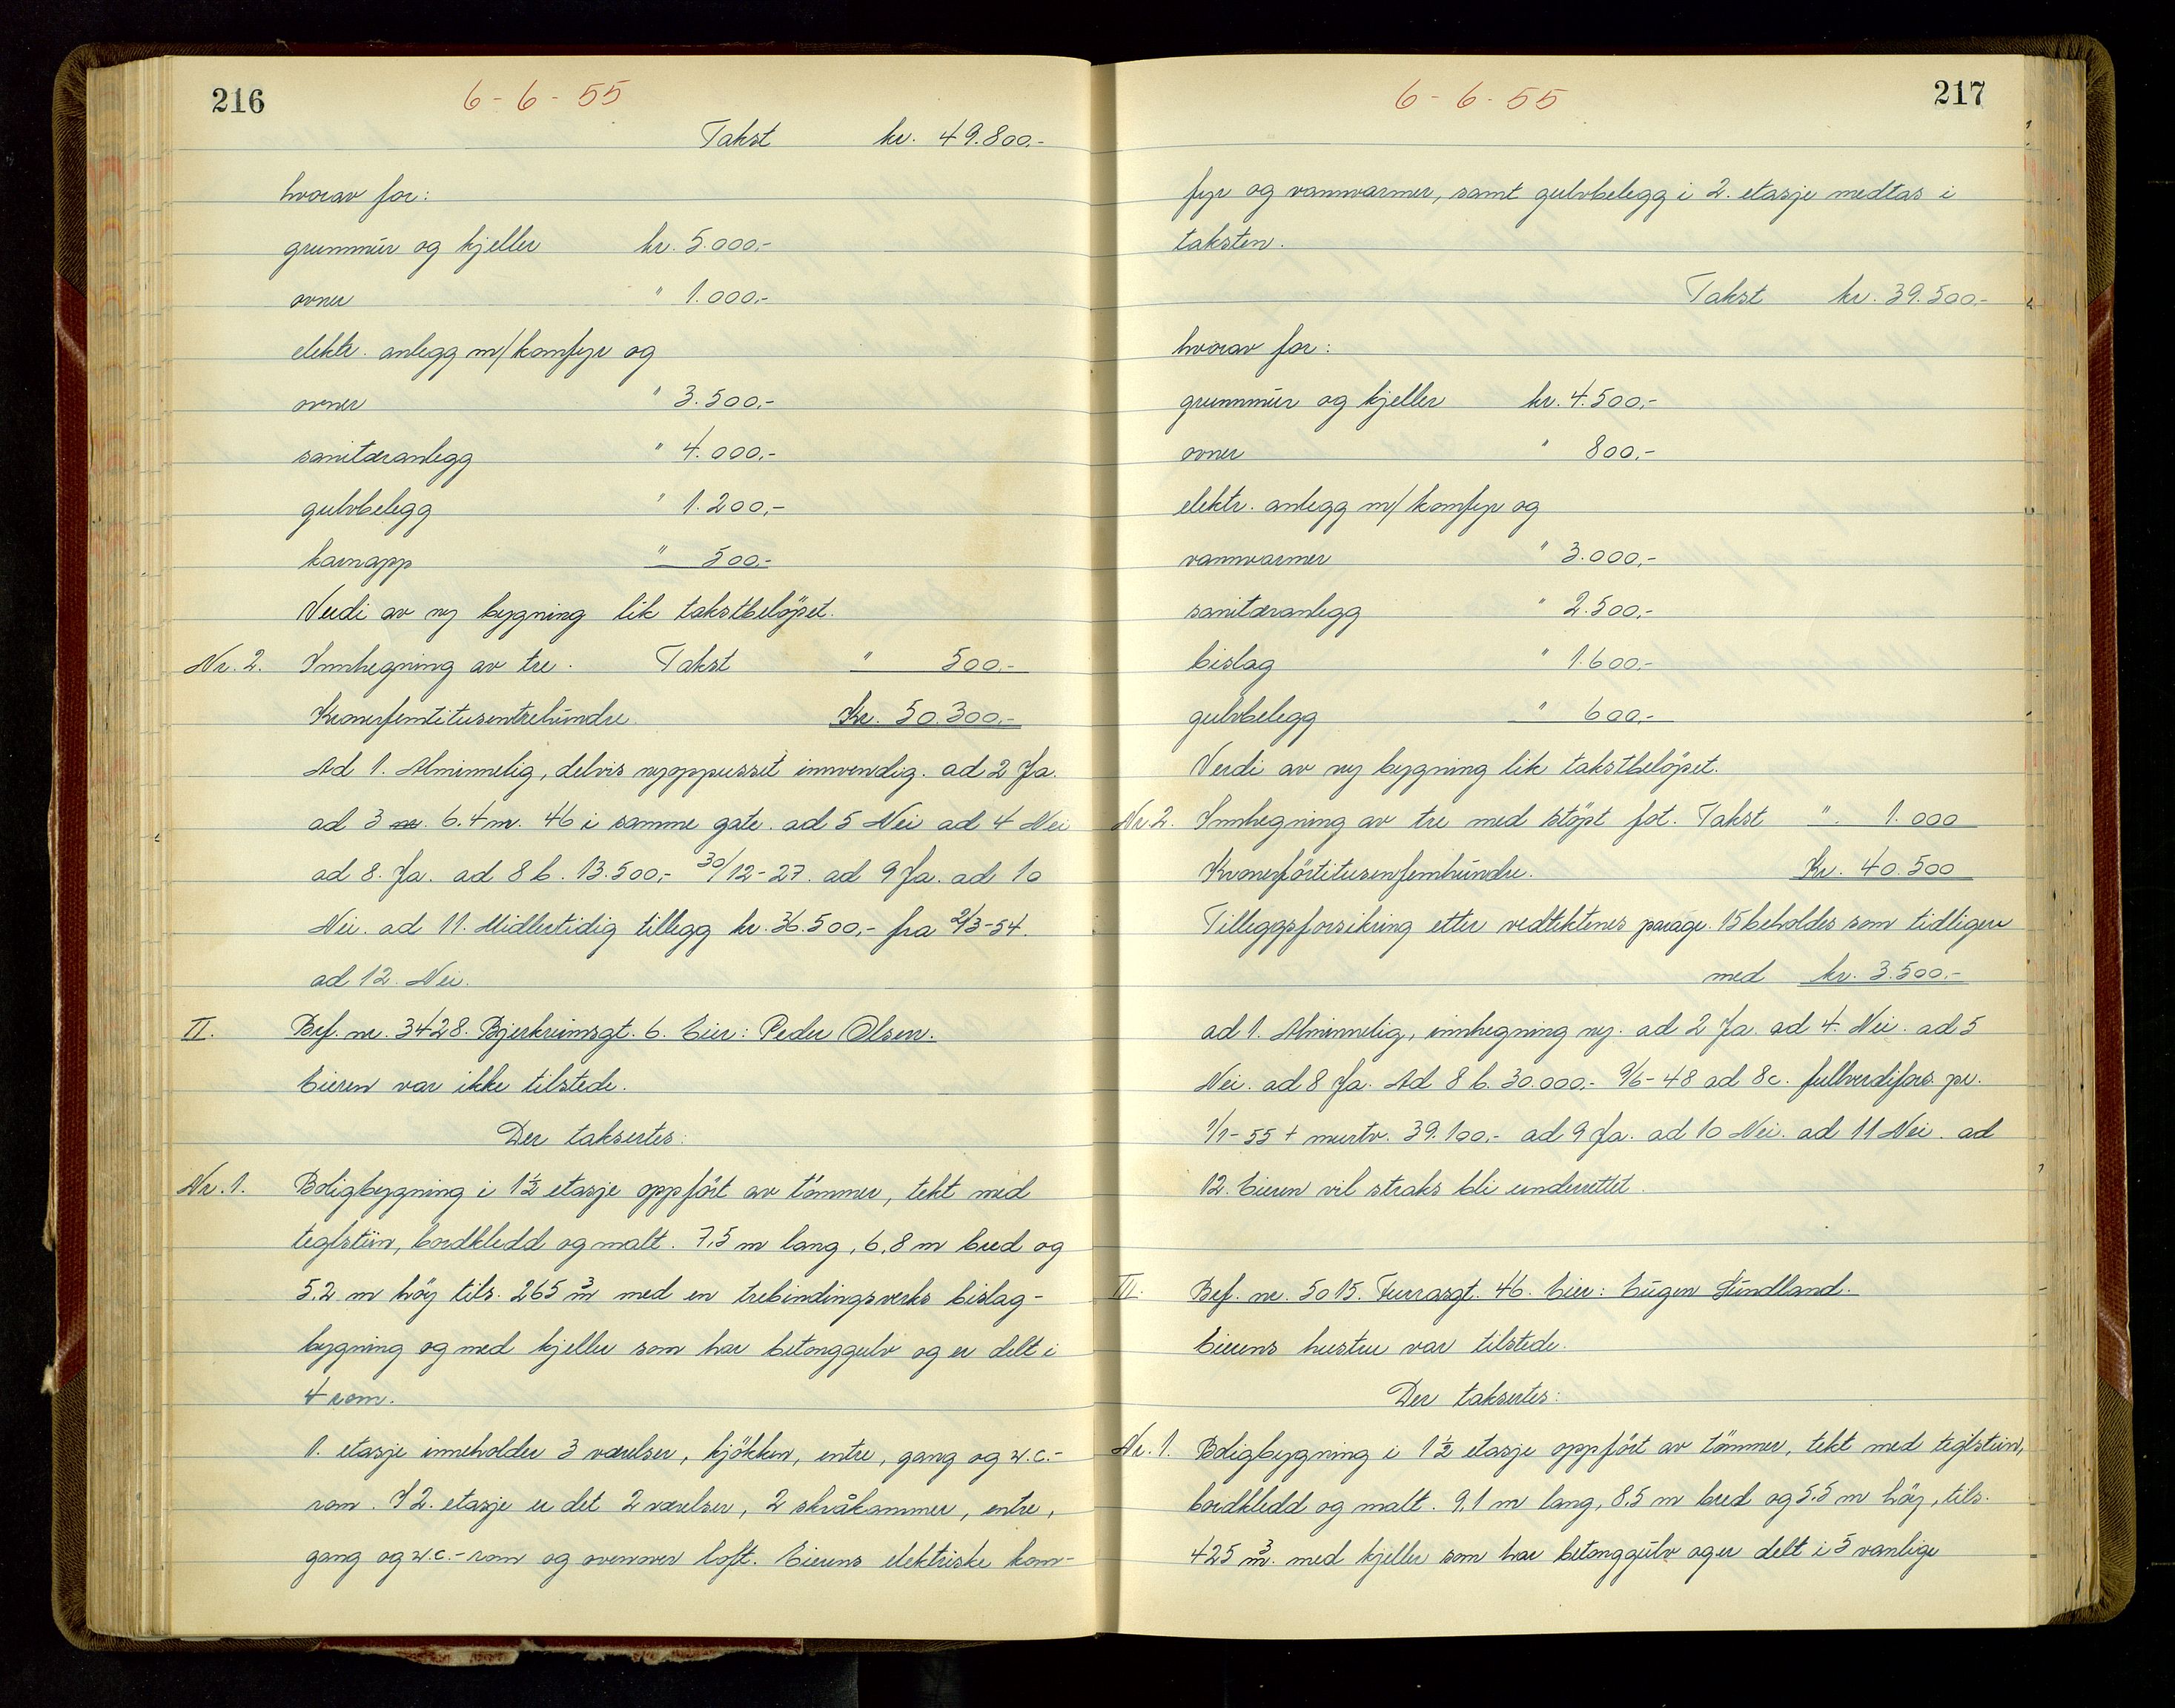 216
6-6-55
Takst kr. 49.800.-
hvorav for:
grunnmur og kjeller kr. 5.000,-
ovner " 1.000,-
elektr. anlegg m/komfyr og
ovner " 3.500,-
sanitæranlegg " 4.000,-
gulvbelegg " 1.200,-
karnapp " 500.-
Verdi av ny bygning lik takstbelöpet.
Nr. 2. Innhegning av tre. Takst " 500.-
Kronerfemtitusentrehundre. Kr. 50.300.-
Ad 1. Alminnelig, delvis nyoppusset innvendig. ad 2 Ja.
ad 3 6.4 m. 46 i samme gate. ad 5 Nei ad 4 Nei
ad 8. Ja. ad 8 b. 13.500,- 30/12-27. ad 9 Ja. ad 10
Nei. ad 11. Midlertidig tillegg kr. 36.500,- fra 2/3-54.
ad 12. Nei.
II. Bef. nr. 3428. Bjerkreimsgt. 6. Eier: Peder Olsen.
Eieren var ikke tilstede.
Der taksertes:
Nr. 1. Boligbygning i 1½ etasje oppfört av tömmer, tekt med
teglstein, bordkledd og malt. 7,5 m lang, 6,8 m bred og
5.2 m höy tils. 265 m³ med en trebindingsverks bislag-
bygning og med kjeller som har betonggulv og er delt i
4 rom.
1. etasje inneholder 3 værelser, kjökken, entre, gang og w.c.-
rom. I 2. etasje er det 2 værelser, 2 skråkammer, entre,
gang og w.c.-rom og ovenover loft. Eierens elektriske kom-
6-6-55
217
fyr og vannvarmer, samt gulvbelegg i 2. etasje medtas i
taksten.
Takst kr. 39.500.-
hvorav for:
grunnmur og kjeller kr. 4.500,-
ovner " 800,-
elektr. anlegg m/komfyr og
vannvarmer " 3.000,-
sanitæranlegg " 2.500,-
bislag " 1.600,-
gulvbelegg " 600,-
Verdi av ny bygning lik takstbelöpet.
Nr. 2. Innhegning av tre med stöpt fot. Takst " 1.000
Kronerförtitusenfemhundre. Kr. 40.500
Tilleggsforsikring etter vedtektenes paragr. 15 beholdes som tidligere
med kr. 3.500.-
ad 1. Alminnelig, innhegning ny. ad 2 Ja. ad 4. Nei. ad 5
Nei. ad 8 Ja. Ad 8 b. 30.000.- 9/6-48 ad 8c. fullverdifors. pr.
1/1-55 + 39.100.- ad 9 Ja. ad 10 Nei. ad 11 Nei. ad
12. Eieren vil straks bli underrettet.
III. Bef. nr. 5015. Furrasgt. 46. Eier: Eugen Sundland.
Eierens hustru var tilstede.
Der taksertes:
Nr. 1. Boligbygning i 1½ etasje oppfört av tömmer, tekt med teglstein,
bordkledd og malt. 9,1 m lang, 8,5 m bred og 5,5 m höy, tils.
425 m³. med kjeller som har betonggulv og er delt i 5 vanlige